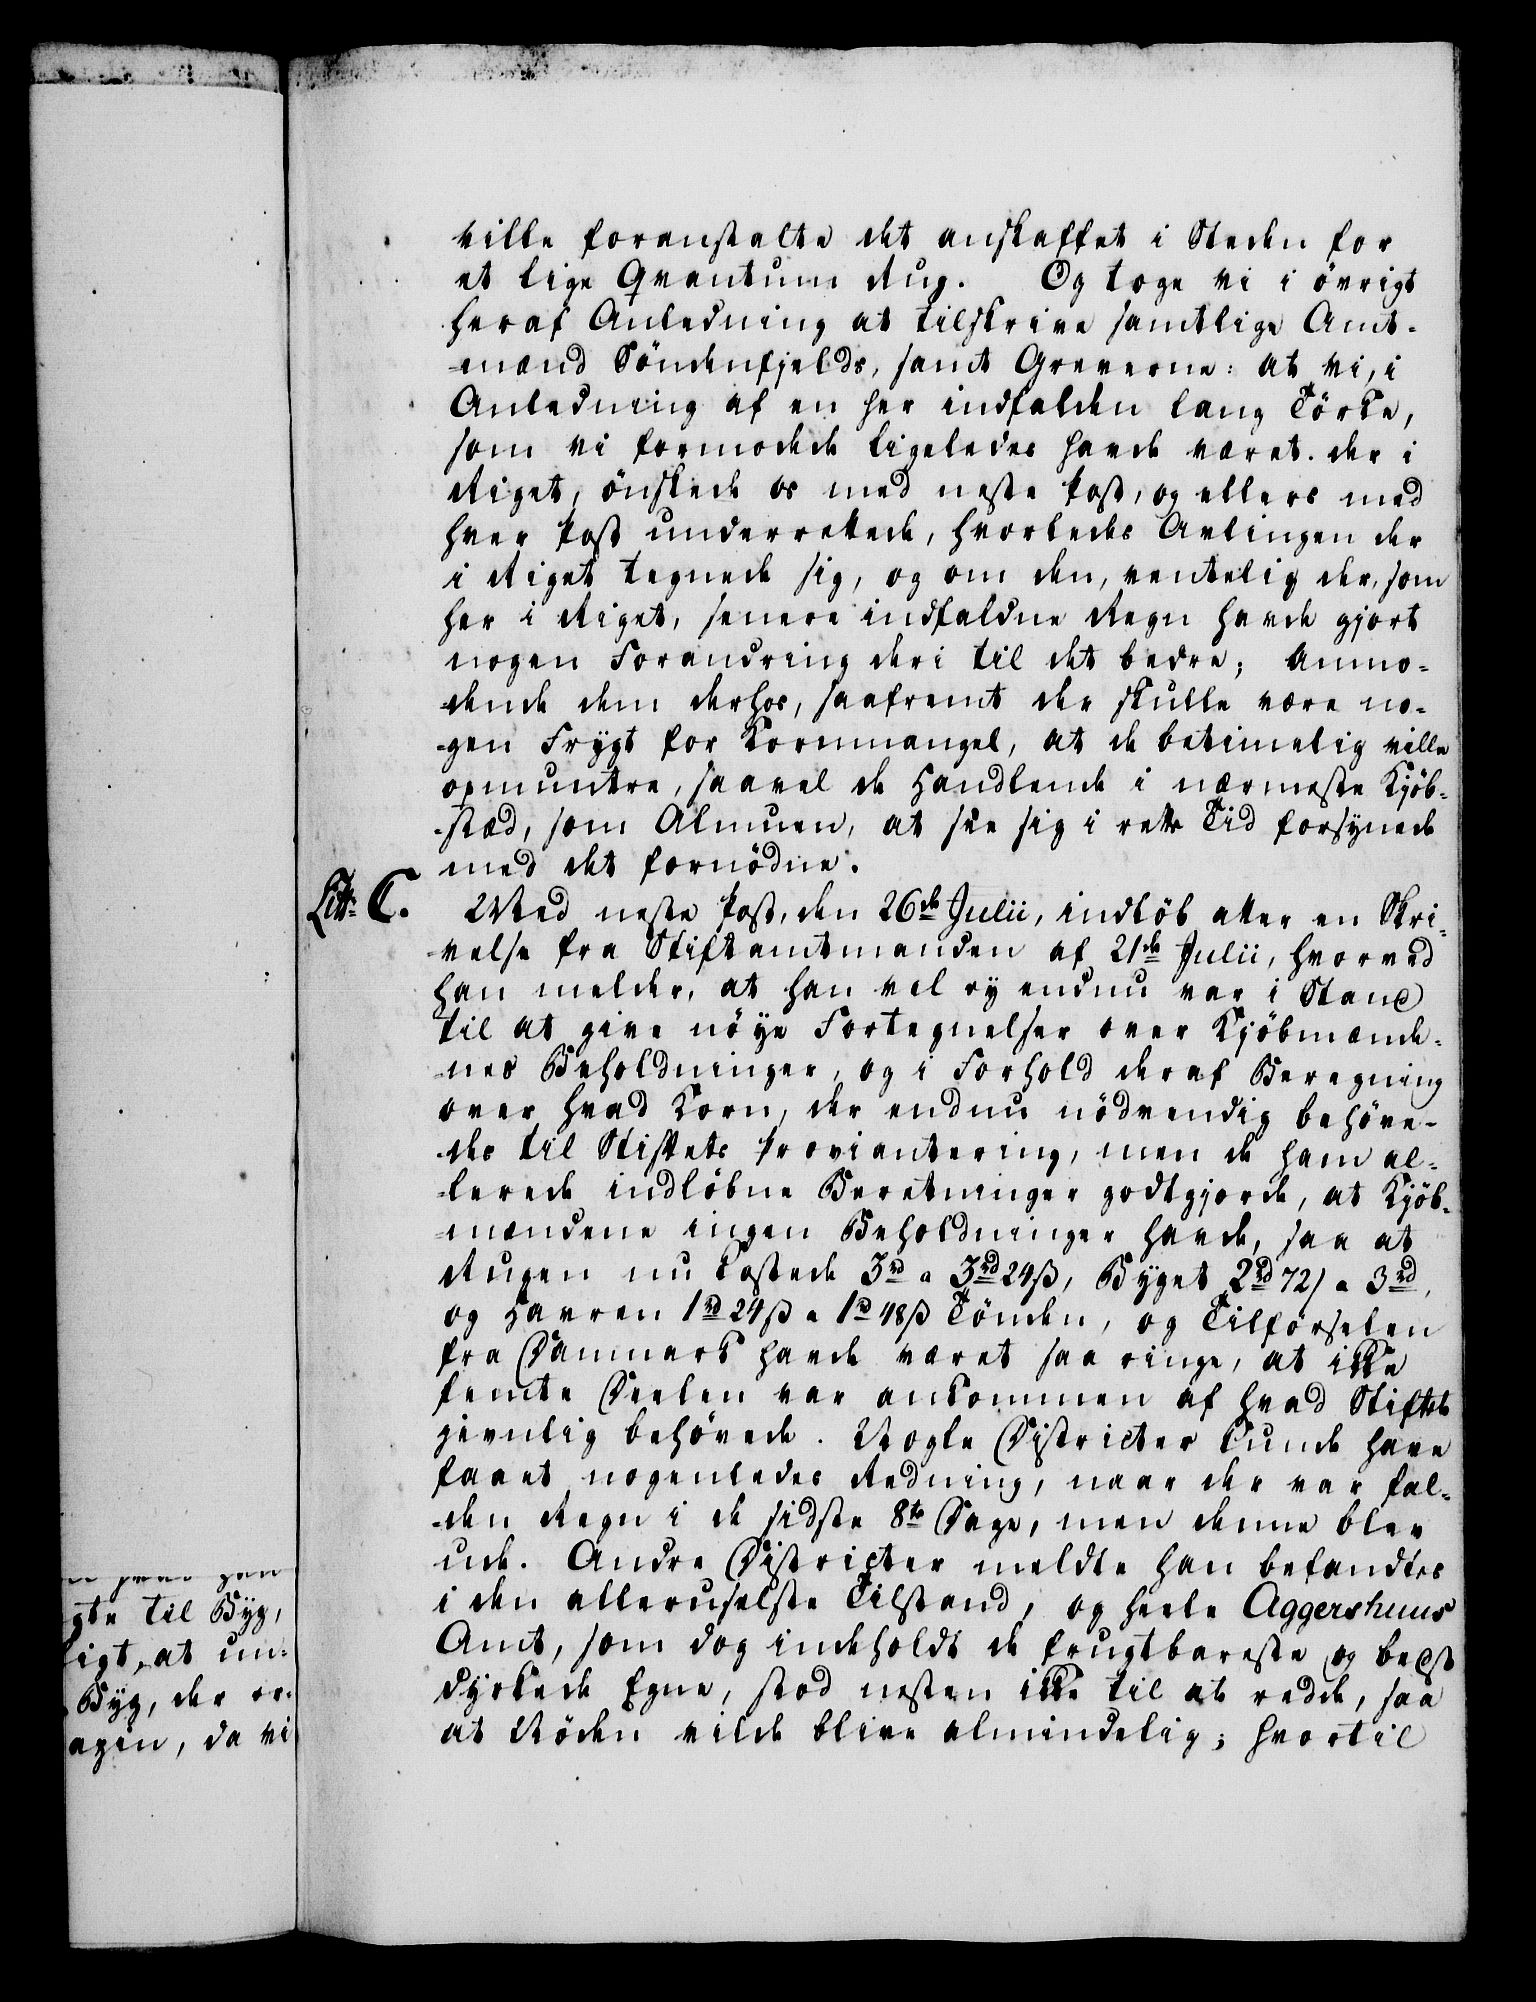 ville foranstalte det anskaffet i Steden for
et lige Qvantum Rug. Og toge vi i övrigt
heraf Anledning at tilskrive samtlige Amt-
-mænd Söndenfjelds, samt Greverne: at vi, i
Anledning af en her indfalden lang Törke,
som vi formodede ligeledes havde været der i
Riget, önskede os med neste Post, og ellers med
hver Post underrettede, hvorledes Avlingen der
i Riget tegnede sig, og om den, ventelig der, som
her i Riget, senere indfaldne Regn havde gjort
nogen Forandring deri til det bedre; Anmo-
-dende dem derhos, saafremt der skulle være no-
-gen Frygt for Kornmangel, at de betimelig ville
opmuntre, saavel de Handlende i nærmeste Kjöb-
-stæd, som Almuen, at see sig i rette Tid forsynede
med det fornödne.
Litr. C. Med neste Post, den 26de Julii, indlöb atter en Skri-
-velse fra Stiftamtmanden af 21de Julii, hvorved
han melder, at han vel ey endnu var i Stand
til at give nöye Fortegnelser over Kjöbmænde-
-nes Beholdninger, og i Forhold deraf Beregning
over hvad Korn, der endnu nödvendig behöve-
-des til Stiftets Proviantering, men de ham al-
-lerede indløbne Beretninger godtgjorde, at Kjöb-
-mændene ingen Beholdninger havde, saa at
Rugen nu kostede 3rd a 3rd 24ß, Byget 2rd 72ß a 3rd,
og Havren 1rd 24ß a 1rd 48ß Tönden, og Tilförselen
fra Danmark havde været saa ringe, at ikke
femte Deelen var ankommen af hvad Stiftet
jevnlig behövede. Nogle Districter kunde have
faaet nogenledes Redning, naar der var fal-
-den Regn i de sidste 8te Dage, men denne blev
ude. Andre Districter meldte han befandtes
i den alleruselste Tilstand, og heele Aggershuus
Amt, som dog indeholdt de frugtbareste og bedst
dyrkede Egne, stod nesten ikke til at redde, saa
at Nöden vilde blive almindelig; hvortil
gte til Byg,
ligt, at un-
Byg, der or-
agen, da vi